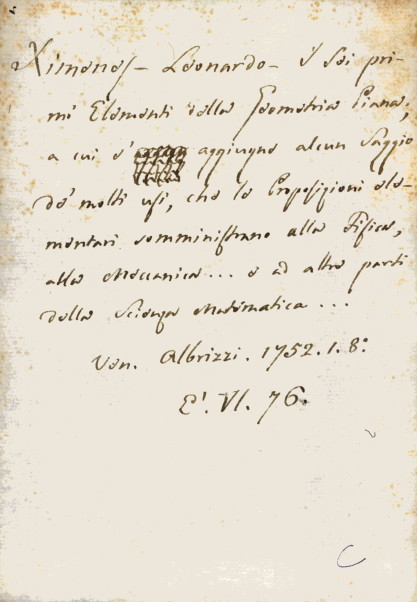 Ximenes - Leonardo - I Sei pri-
mi Elementi della Geometria Piana,
a cui s' aggiugne alcun Saggio
de' molti usi, che le Proposizioni ele-
mentari somministrano alla Fisica,
alla Meccanica... e ad altre parti
della Scienza Matematica...
Ven. Albrizzi. 1752. 1. 8:
E'. VI. 76.
C